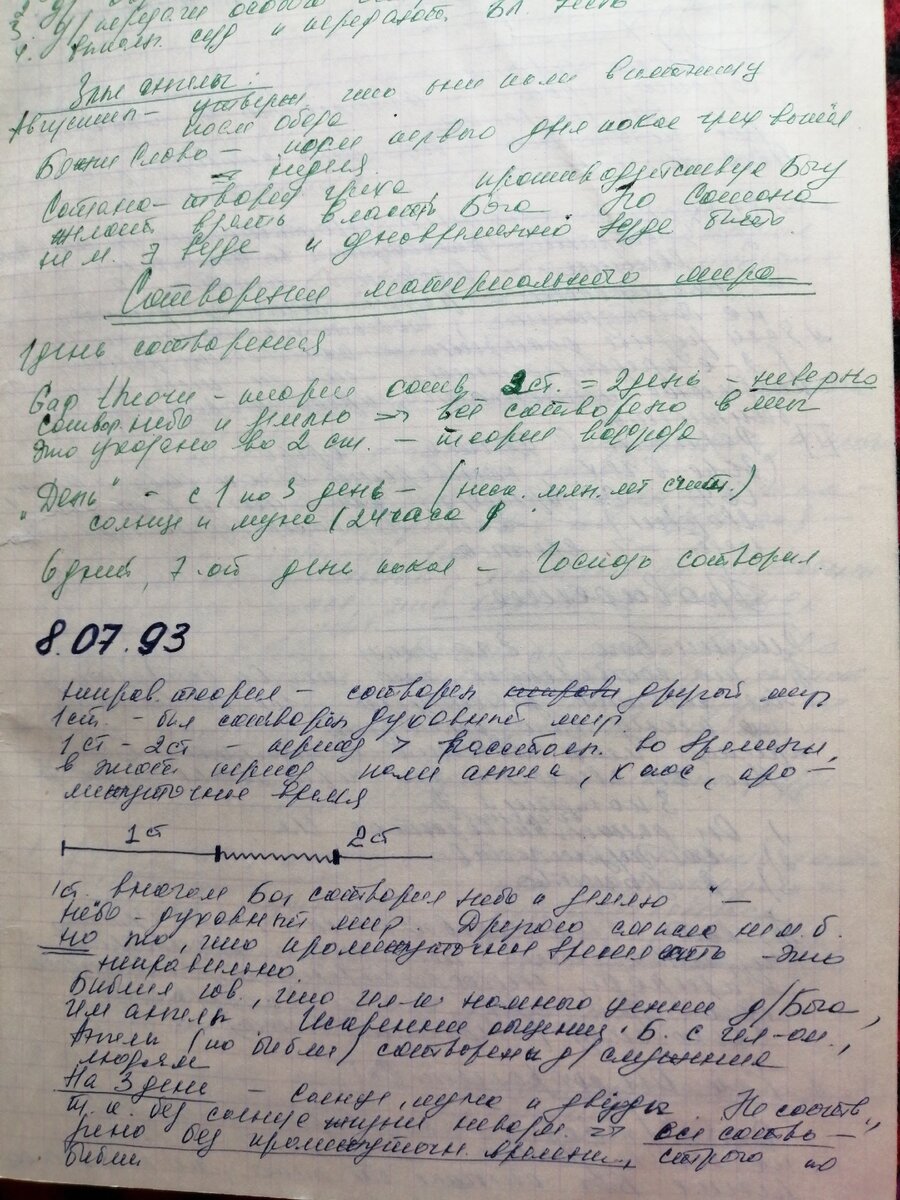 3. д/ передачи особого
4. выполн. суд и передают Бл. весть
Злые ангелы:
Августин – утверж что они пали в пятницу
после обеда
Божие Слово – после первого дня покоя грех вошёл
⇒ неделя
Сатана – творец греха, противодействует Богу
желает врать власть Бога. Но сатана
не м. везде и одновременно везде быть.
Сотворение материального мира
1 день сотворения
теория сотв. 3 ст. = 2 день – неверно
сотвор. небо и землю → всё сотворено в миг
Это указано во 2 ст. – теория водорода
„День" – с 1 по 3 день – (неск. млн. лет счит.)
солнце и луна (24 часа
6 дней, 7-ой день покоя – Господь сотворил.
8.07.93
неправ. теория – сотворен другой мир
1 ст. – был сотворён духовный мир
1 ст – 2 ст – период > расстоян. во времени,
в этот период пали ангелы, хаос, про–
межуточное время
1 ст 2 ст
1 ст. „вначале Бог сотворил небо и землю" –
небо – духовный мир. Другого смысла не м. б.
но то, что промежуточное время есть – это
неправильно.
Библия гов., что чел-к намного ценней д/Бога,
чем ангелы. Искреннее общение Б. с чел-ом.,
Ангелы (по библии) сотворены д/служения
людям
На 3 день – солнце, луна и звёзды. Не соотв
т.к. без солнца жизни невозм. ⇒ все сотво–
рено без промежуточн. времени, строго по
библии